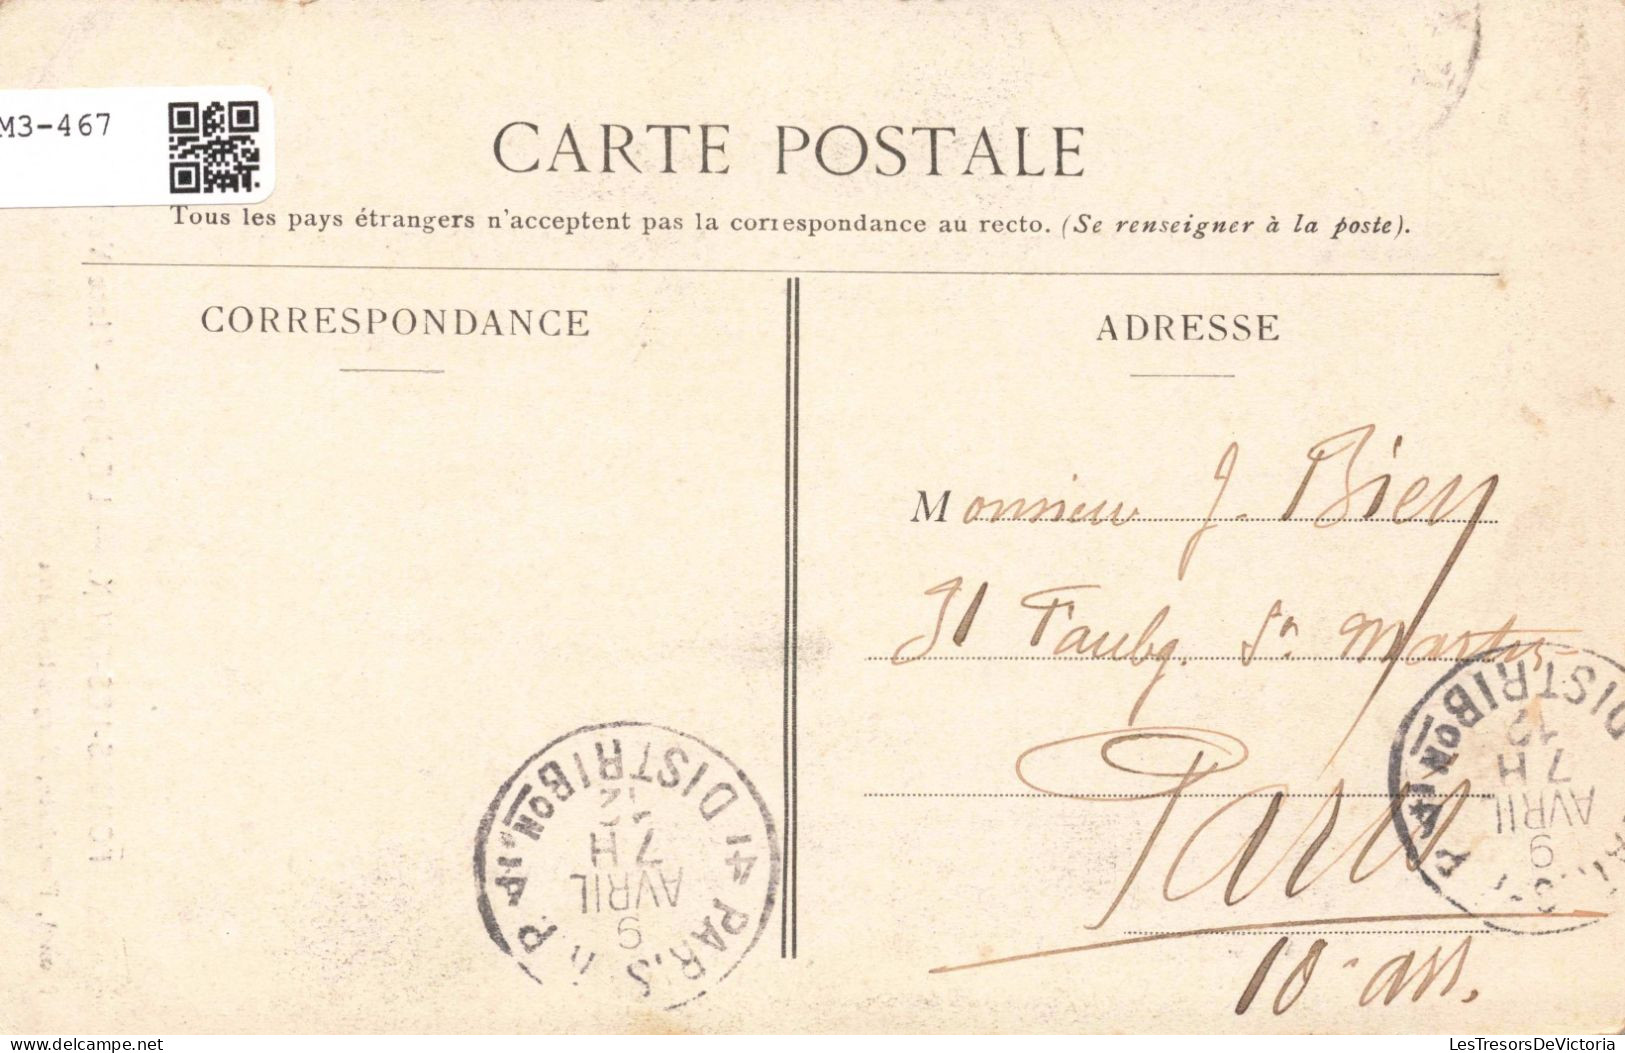 M3-467
CARTE POSTALE
Tous les pays étrangers n'acceptent pas la correspondance au recto. (Se renseigner à la poste).
CORRESPONDANCE
ADRESSE
Monsieur J. Biey
31 Faubg. St. Martin
Paris
10e arr.
PARIS 14 DISTRIBON
12
7 H
AVRIL
9
DISTRIBON 14
12
7 H
AVRIL
9
delcampe.net
LesTresorsDeVictoria